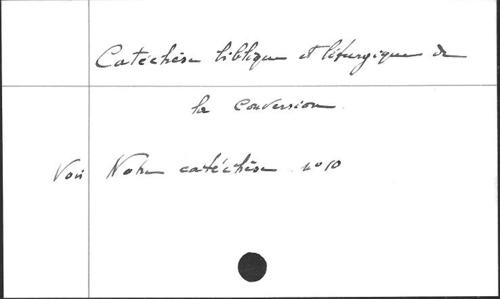 Catéchèse biblique et liturgique de
la conversion.
Voir Notre catéchèse n° 10